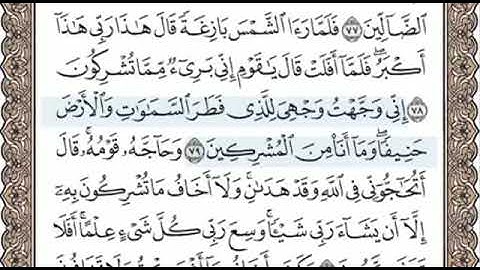 ٱلضَّآلِّينَ ٧٧ فَلَمَّا رَءَا ٱلشَّمْسَ بَازِغَةً قَالَ هَٰذَا رَبِّي هَٰذَآ
أَكْبَرُ ۖ فَلَمَّآ أَفَلَتْ قَالَ يَٰقَوْمِ إِنِّي بَرِيٓءٌ مِّمَّا تُشْرِكُونَ
٧٨ إِنِّي وَجَّهْتُ وَجْهِيَ لِلَّذِي فَطَرَ ٱلسَّمَٰوَٰتِ وَٱلْأَرْضَ
حَنِيفًا ۖ وَمَآ أَنَا۠ مِنَ ٱلْمُشْرِكِينَ ٧٩ وَحَآجَّهُۥ قَوْمُهُۥ ۚ قَالَ
أَتُحَٰٓجُّوٓنِّي فِي ٱللَّهِ وَقَدْ هَدَىٰنِ ۚ وَلَآ أَخَافُ مَا تُشْرِكُونَ بِهِۦٓ
إِلَّآ أَن يَشَآءَ رَبِّي شَيْـًٔا ۗ وَسِعَ رَبِّي كُلَّ شَيْءٍ عِلْمًا ۗ أَفَلَا